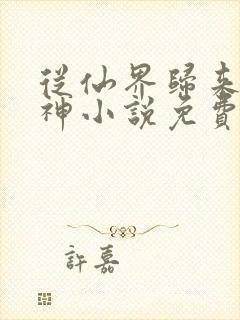 從仙界歸來
神小說免費
許嘉